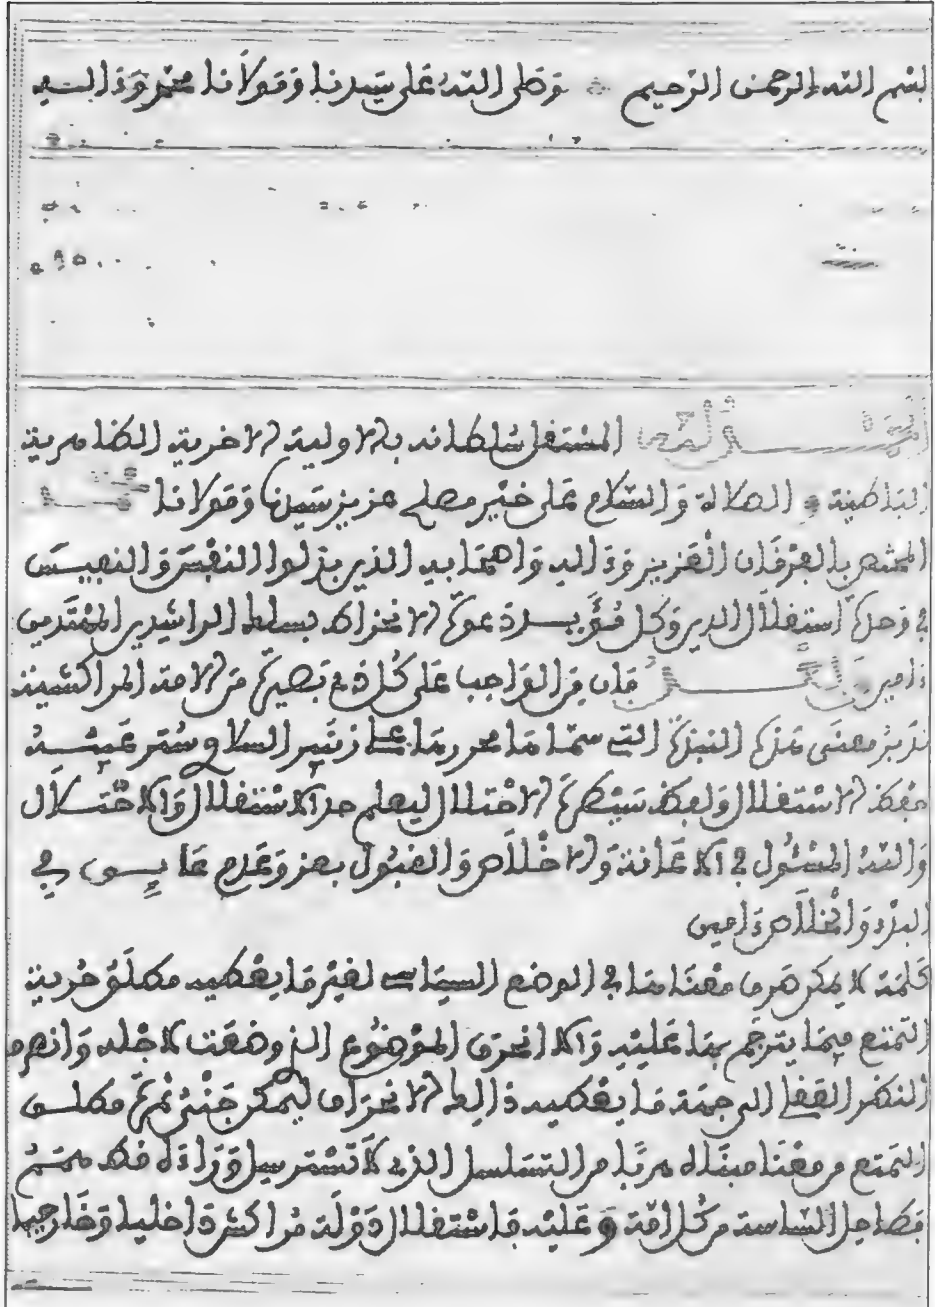 بسم الله الرحمن الرحيم وصلى الله على سيدنا ومولانا محمد وءاله
الحمد لله المستقل سلطانه بالاولية الاخرية الظاهرية
الباطنية والصلاة والسلام على خير مصلح عزيز سيدنا ومولانا محمد
بالعرفان العزيز وءاله واصحابه الذين بذلوا النفس والنفيس
في وحدة استقلال الدين وكل فؤيسـ دعوة الانخراط بسلك الراشدين المهتدين
ءامين وبعد فان من الواجب على كل ذي بصيرة من الامة المراكشية
تدبر معنى هذه النبذة التي سماها محررها
الاستقلال الاختلال ليعلم حد الاستقلال والاحتلال
والله المسئول في الاعانة والاخلاص والقبول بعز وعدم في
البدء والخلاص وءامين
كلمة لا يمكن صرف معناها في الوضع السياسي لغير ما يعطيه مطلق حرية
التمتع فيما يترجم بها عليه والا انحرف الموضوع الذي وضعت لاجله وانصرف
النظر القفا الى جهة ما يعطيه ذلك الانحراف ليمكن جني ثمرة مطلق
التمتع من معنا مبناه هربا من التسلسل الذي لا تسترسل وراءه قط همم
فطاحل الساسة من كل امة وعليه فاستقلال دولة مراكش داخليا وخارجيا